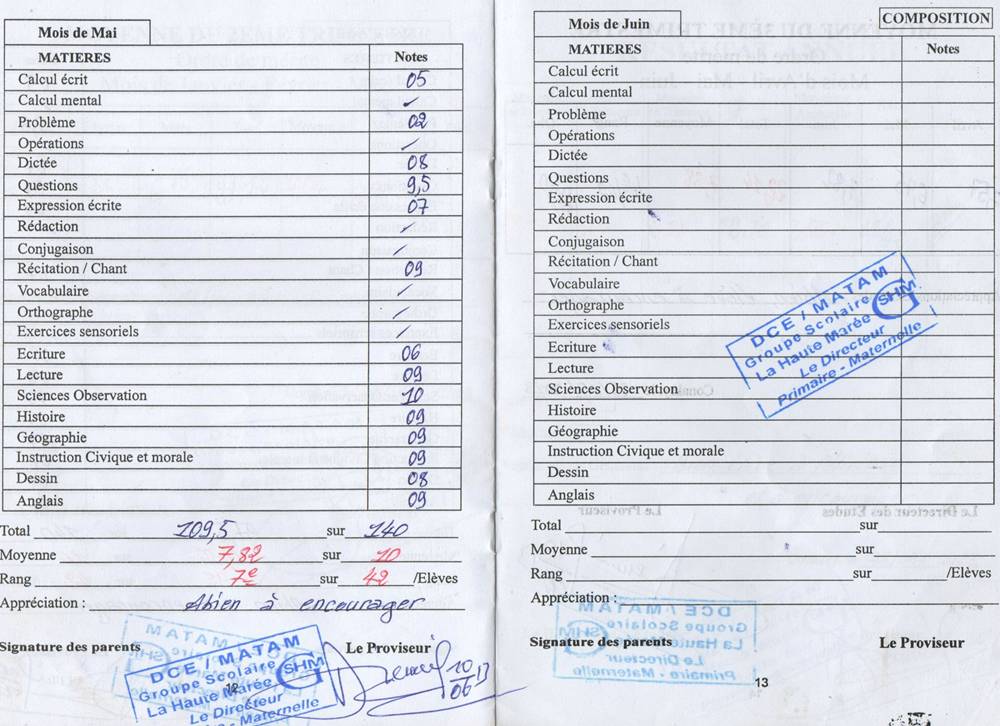 Mois de Mai
MATIERES Notes
Calcul écrit 05
Calcul mental ✓
Problème 02
Opérations ✓
Dictée 08
Questions 9,5
Expression écrite 07
Rédaction ✓
Conjugaison ✓
Récitation / Chant 09
Vocabulaire ✓
Orthographe ✓
Exercices sensoriels ✓
Ecriture 06
Lecture 09
Sciences Observation 10
Histoire 09
Géographie 09
Instruction Civique et morale 09
Dessin 08
Anglais 09
Total 109,5 sur 140
Moyenne 7,82 sur 10
Rang 7e sur 42 /Elèves
Appréciation : Abien à encourager
Signature des parents Le Proviseur
DCE / MATAM
Groupe Scolaire
La Haute Marée SHM
Le Directeur
Maternelle
10/06/13
12
Mois de Juin
COMPOSITION
MATIERES Notes
Calcul écrit
Calcul mental
Problème
Opérations
Dictée
Questions
Expression écrite
Rédaction
Conjugaison
Récitation / Chant
Vocabulaire
Orthographe
Exercices sensoriels
Ecriture
Lecture
Sciences Observation
Histoire
Géographie
Instruction Civique et morale
Dessin
Anglais
DCE / MATAM
Groupe Scolaire
La Haute Marée SHM
Le Directeur
Primaire - Maternelle
Total sur
Moyenne sur
Rang sur /Elèves
Appréciation :
Signature des parents Le Proviseur
13